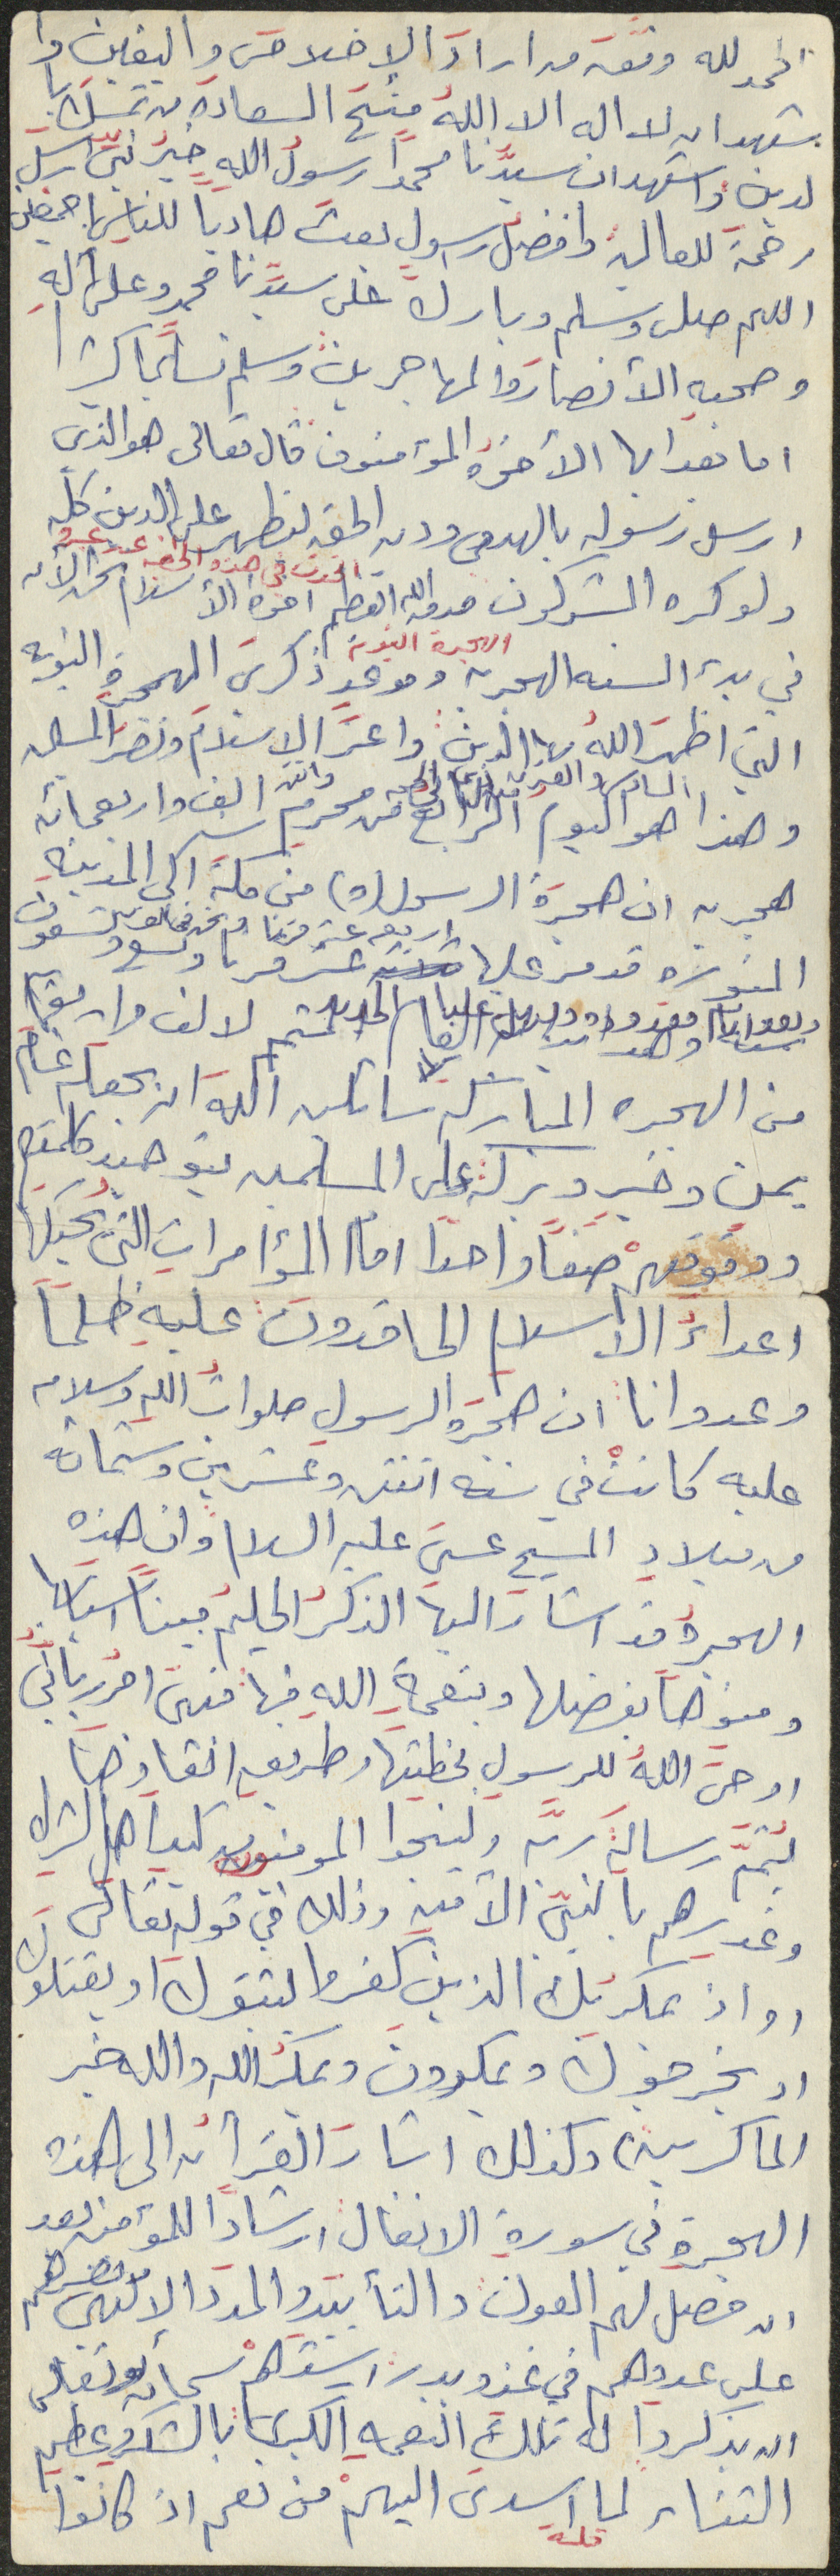 الحمد لله وفقه من اراد الاخلاص واليقين وا
شهد ان لا اله الا الله منح السعادة من تمسك با
لدين واشهد ان سيدنا محمداً رسول الله خير نبي ارسل
رحمة للعالمين وافضل رسول بعث هادياً للناس اجمعين
اللهم صلى وسلم وبارك على سيدنا محمد وعلى آله
وصحبه الأنصار والمهاجرين وسلم تسليماً كثيرا
اما بعد ايها الأخوة المؤمنون قال تعالى هو الذي
ارسل رسوله بالهدى ودين الحق ليظهره على الدين كله
ولو كره المشركون صدق الله العظيم اخوة الأسلام نحن الأن
في بدء السنه الهجريه وموعد ذكرى الهجرة النبويه
الهجرة النبوية
التي اظهر الله بها الدين واعز الاسلام ونصر المسلمين
وهذا هو اليوم الرابع من محرم الف واربعمائه
هجريه ان هجرة الرسول (ص) من مكة الى المدينه
المنوره قد مر عليها اربعة عشر قرنا
من الهجره المباركه سائلين الله ان يجعله عام
يمن وخير وبركة على المسلمين بتوحيد كلمتهم
ووقوفهم صفاً واحدا امام المؤامرات التي تحيكها
اعداء الأسلام الحاقدون عليه ظلماً
وعدوانا ان هجرة الرسول صلوات الله وسلامه
عليه كانت في سنه اثنتين وعشرين وستمائه
من ميلاد المسيح عيسى عليه السلام وان هذه
الهجرة قد اشار اليها الذكر الحكيم مبيناً اسبابها
ومنوهاً بفضلها وبنعمة الله فيها فهى امر رباني
اوحى الله للرسول بخطتها وطريقه انقاذها
ليتم رسالة ربه ولينجوا المومنون من كيد اهل الشرك
وغدرهم بالنبي الأمين وذلك في قوله تعالى
(واذ يمكر بك الذين كفروا ليثبتوك او يقتلوك
او يخرجوك ويمكرون ويمكر الله والله خير
الماكرين) وكذلك اشار القرآن الى هذه
الهجرة في سورة الانفال ارشاداً للمؤمنين بعد
ان حصل لهم العون والتأييد والمدد الالهي بنصرهم
على عدوهم في غزوه بدر ارشدهم سبحانه وتعالى
ان يذكروا له تلك النعمه الكبرى بالشكر وعظيم
الثناء لما اسدى اليهم من نعم اذ كانوا
قلة